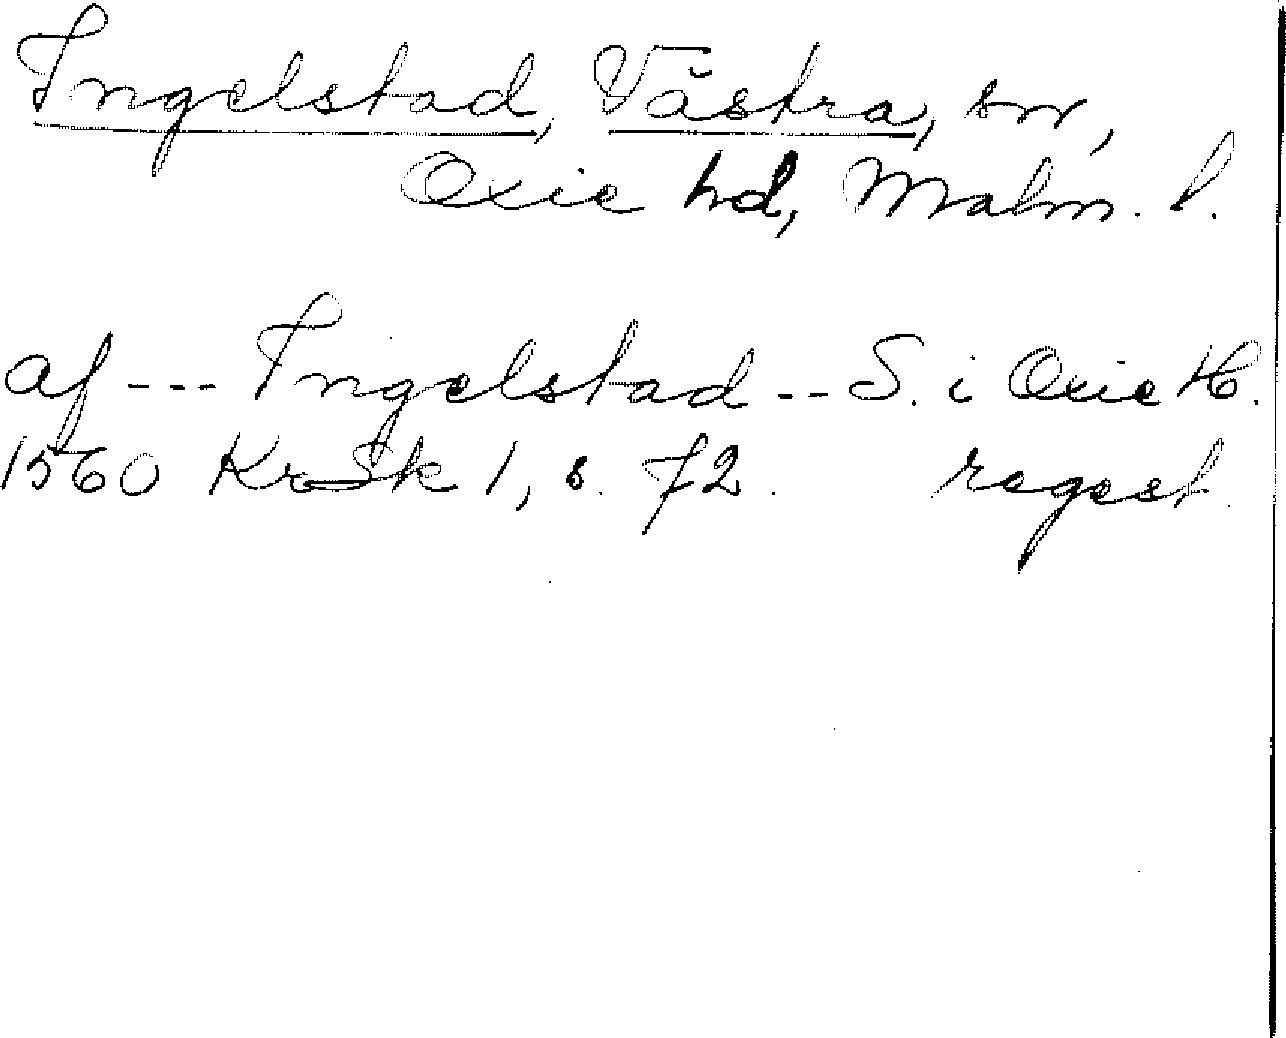 Ingelstad, Västra, sn,
Oxie hd, Malm. l.
af --- Ingelstad -- S. i Oxie H.
1560 KroSk 1, s. 72. regest.